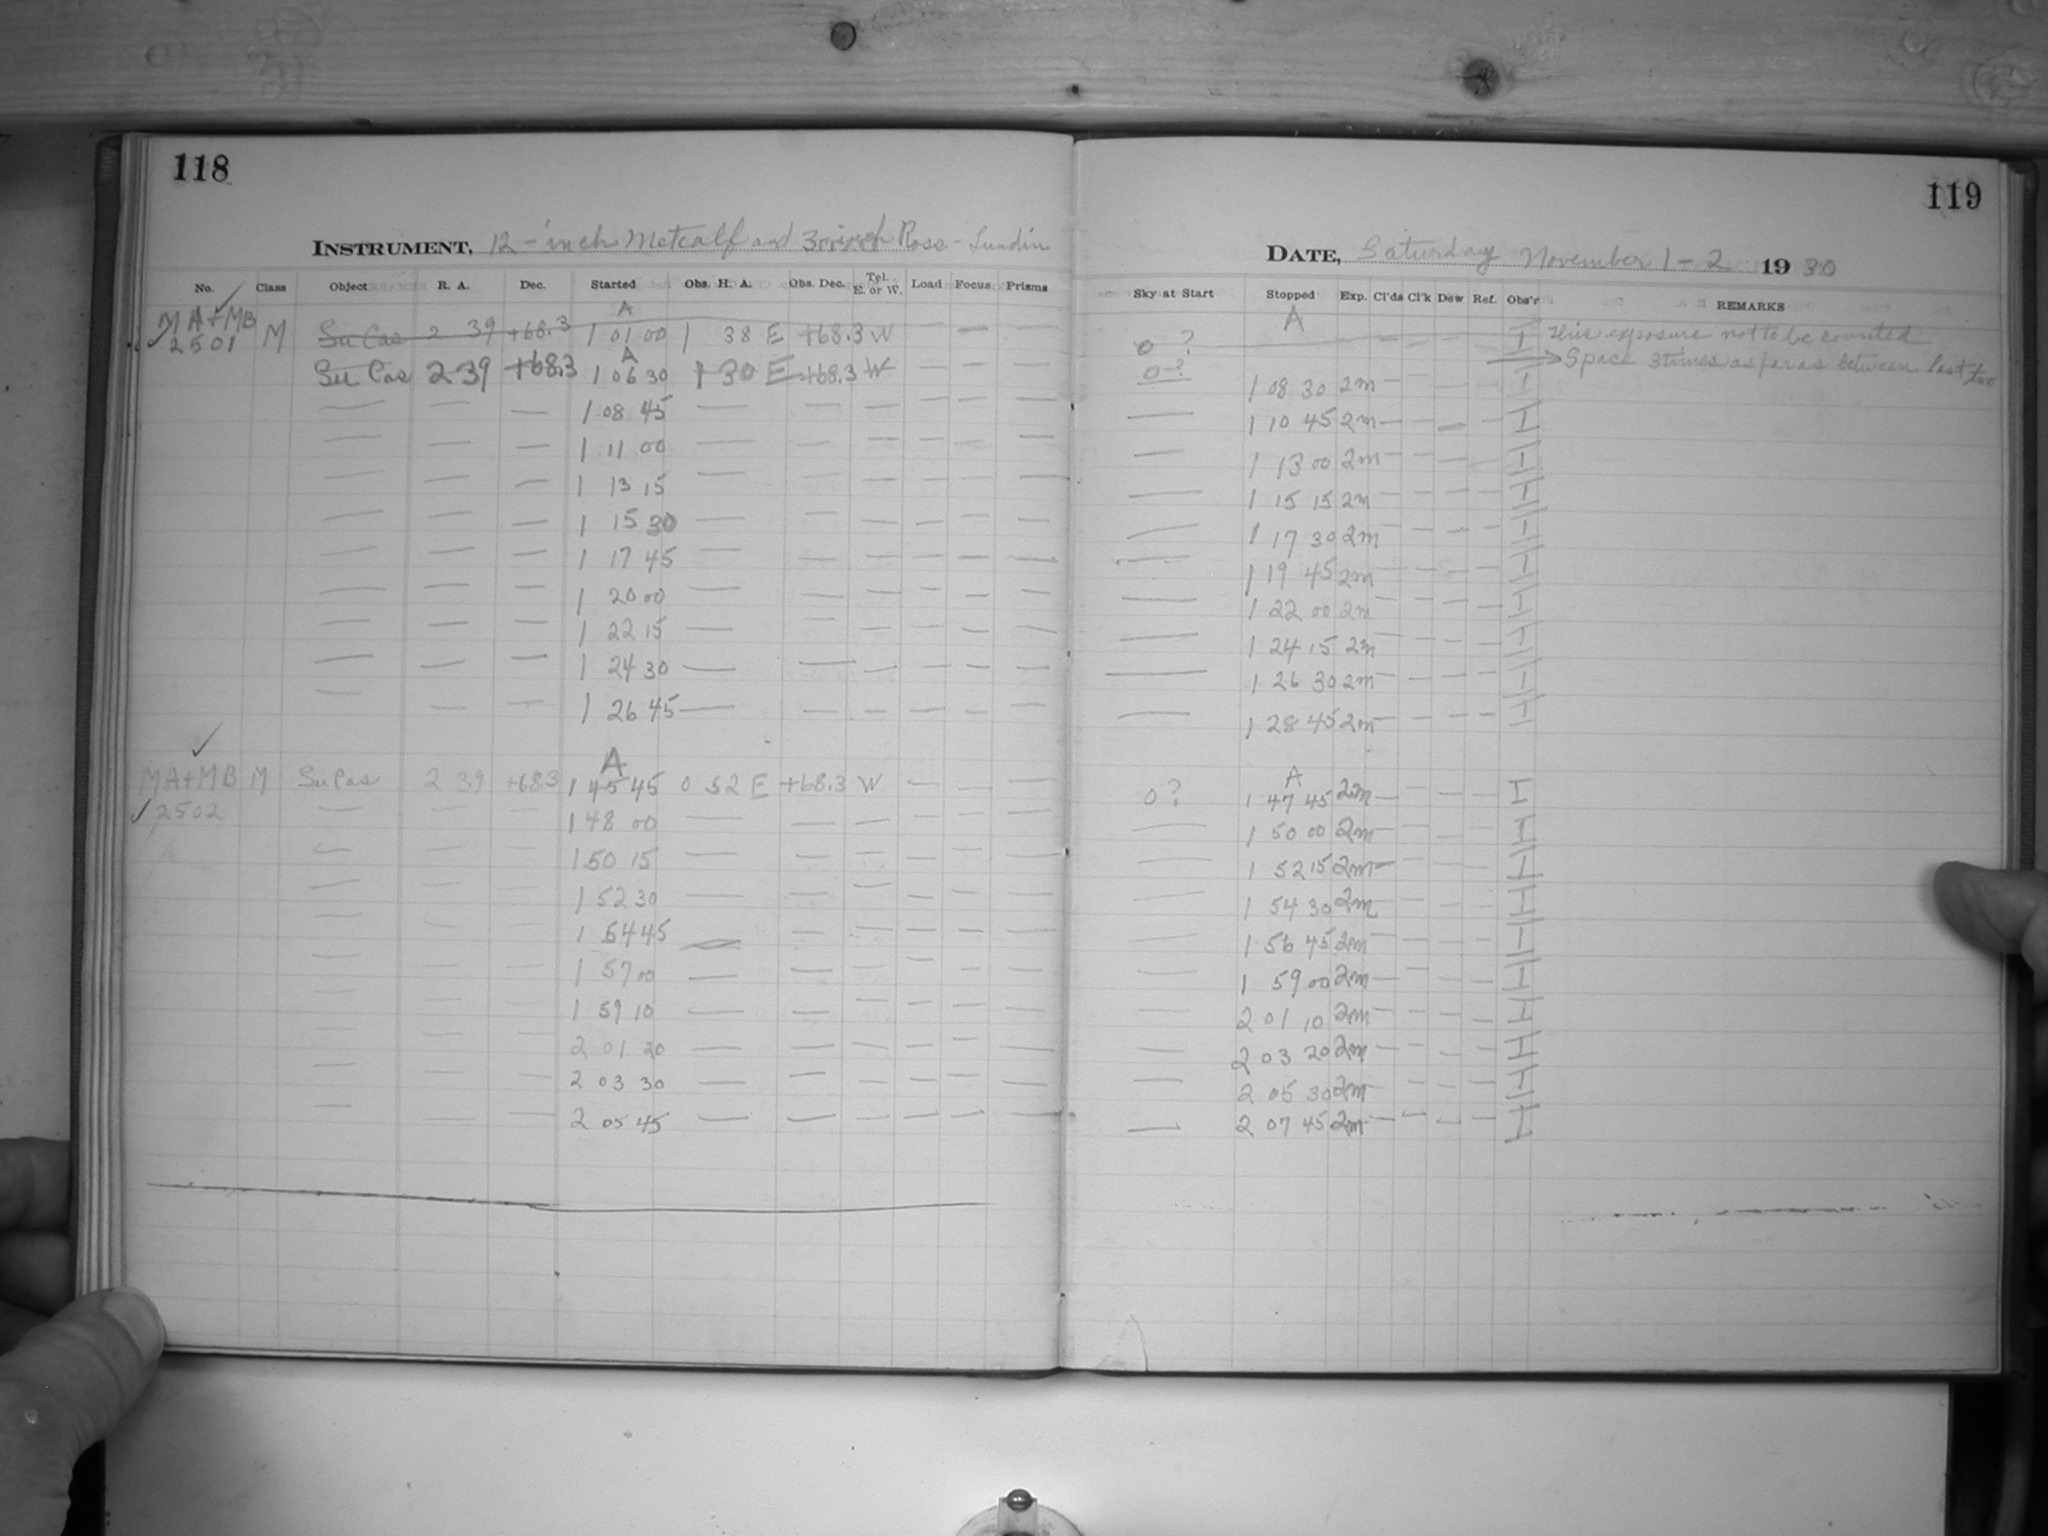 118
INSTRUMENT, 12-inch Metcalf and 3 inch Ross-Lundin
No. Class Object R. A. Dec. Started Obs. H. A. Obs. Dec. Tel. E. or W. Load Focus Prisms
MA+MB M Su Cas 2 39 +68.3 A 1 01 00 1 38 E +68.3 W — — —
2501 Su Cas 2 39 +68.3 A 1 06 30 1 30 E +68.3 W — — —
— — — 1 08 45 — — — — — —
— — — 1 11 00 — — — — — —
— — — 1 13 15 — — — — — —
— — — 1 15 30 — — — — — —
— — — 1 17 45 — — — — — —
— — — 1 20 00 — — — — — —
— — — 1 22 15 — — — — — —
— — — 1 24 30 — — — — — —
— — — 1 26 45 — — — — — —
A
MA+MB M Su Cas 2 39 +68.3 1 45 45 0 52 E +68.3 W — — —
2502 — — — 1 48 00 — — — — — —
— — — 1 50 15 — — — — — —
— — — 1 52 30 — — — — — —
— — — 1 54 45 — — — — — —
— — — 1 57 00 — — — — — —
— — — 1 59 10 — — — — — —
— — — 2 01 20 — — — — — —
— — — 2 03 30 — — — — — —
— — — 2 05 45 — — — — — —
119
DATE, Saturday November 1-2 1930
Sky at Start Stopped Exp. Cl'ds Cl'k Dew Ref. Obs'r REMARKS
A
0? — — — — — — I This exposure not to be counted
0? 1 08 30 2m — — — — I → Space 3 times as far as between last two
— 1 10 45 2m — — — — I
— 1 13 00 2m — — — — I
— 1 15 15 2m — — — — I
— 1 17 30 2m — — — — I
— 1 19 45 2m — — — — I
— 1 22 00 2m — — — — I
— 1 24 15 2m — — — — I
— 1 26 30 2m — — — — I
— 1 28 45 2m — — — — I
A
0? 1 47 45 2m — — — — I
— 1 50 00 2m — — — — I
— 1 52 15 2m — — — — I
— 1 54 30 2m — — — — I
— 1 56 45 2m — — — — I
— 1 59 00 2m — — — — I
— 2 01 10 2m — — — — I
— 2 03 20 2m — — — — I
— 2 05 30 2m — — — — I
— 2 07 45 2m — — — — I